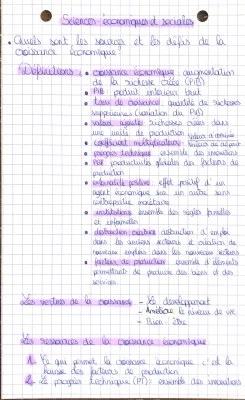 Sciences économiques et sociales
• Quels sont les sources et les défis de la
croissance économique ?
Définitions : • croissance économique augmentation
de la richesse créée (PIB)
• PIB produit intérieur brut
• taux de croissance quantité de richesses
supplémentaires (variation du PIB)
• valeur ajoutée richesses créées dans
une unité de production
• coefficient multiplicateur valeur d'arrivée
valeur de départ
• progrès technique ensemble des innovations
• PGF productivité globale des facteurs de
production
• externalité positive effet positif d'un
agent économique sur un autre sans
contrepartie monétaire
• institutions ensemble des règles formelles
et informelles
• destruction créatrice destruction d'emploi
dans les anciens secteurs et création de
nouveaux emplois dans les nouveaux secteurs
• facteurs de production ensemble d'éléments
permettant de produire des biens et des
services
Les vertus de la croissance - Le développement
- Améliore le niveau de vie
- Bien-être
Les ressources de la croissance économique
1- Ce qui permet la croissance économique c'est la
hausse des facteurs de production
2- Le progrès technique (PT) = ensemble des innovations